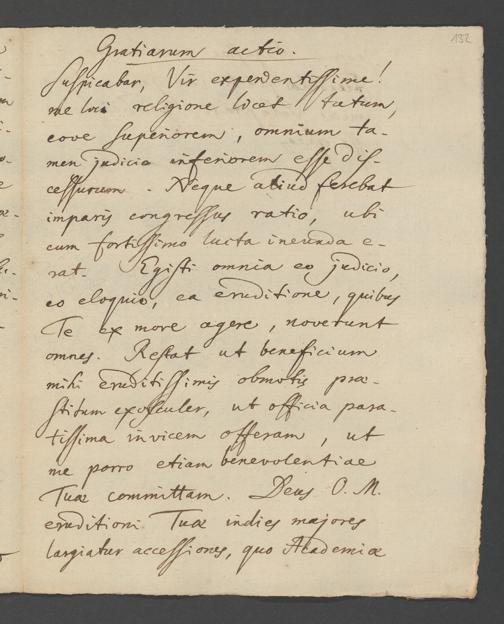 132
Gratiarum actio.
Suspicabar, Vir expedentissime!
me loci religione licet tutum,
eove superiorem, omnium ta-
men judicio inferiorem esse dis-
cessurum. Neque aliud ferebat
imparis congressus ratio, ubi
cum fortissimo lucta ineunda e-
rat. Egisti omnia eo judicio,
eo eloquio, ea eruditione, quibus
Te ex more agere, noverunt
omnes. Restat ut beneficium
mihi eruditissimis obmotis præ-
stitum exosculer, ut officia para-
tissima invicem offeram, ut
me porro etiam benevolentiae
Tuæ committam. Deus O. M.
eruditioni Tuæ indies majores
largiatur accessiones, quo Academiæ